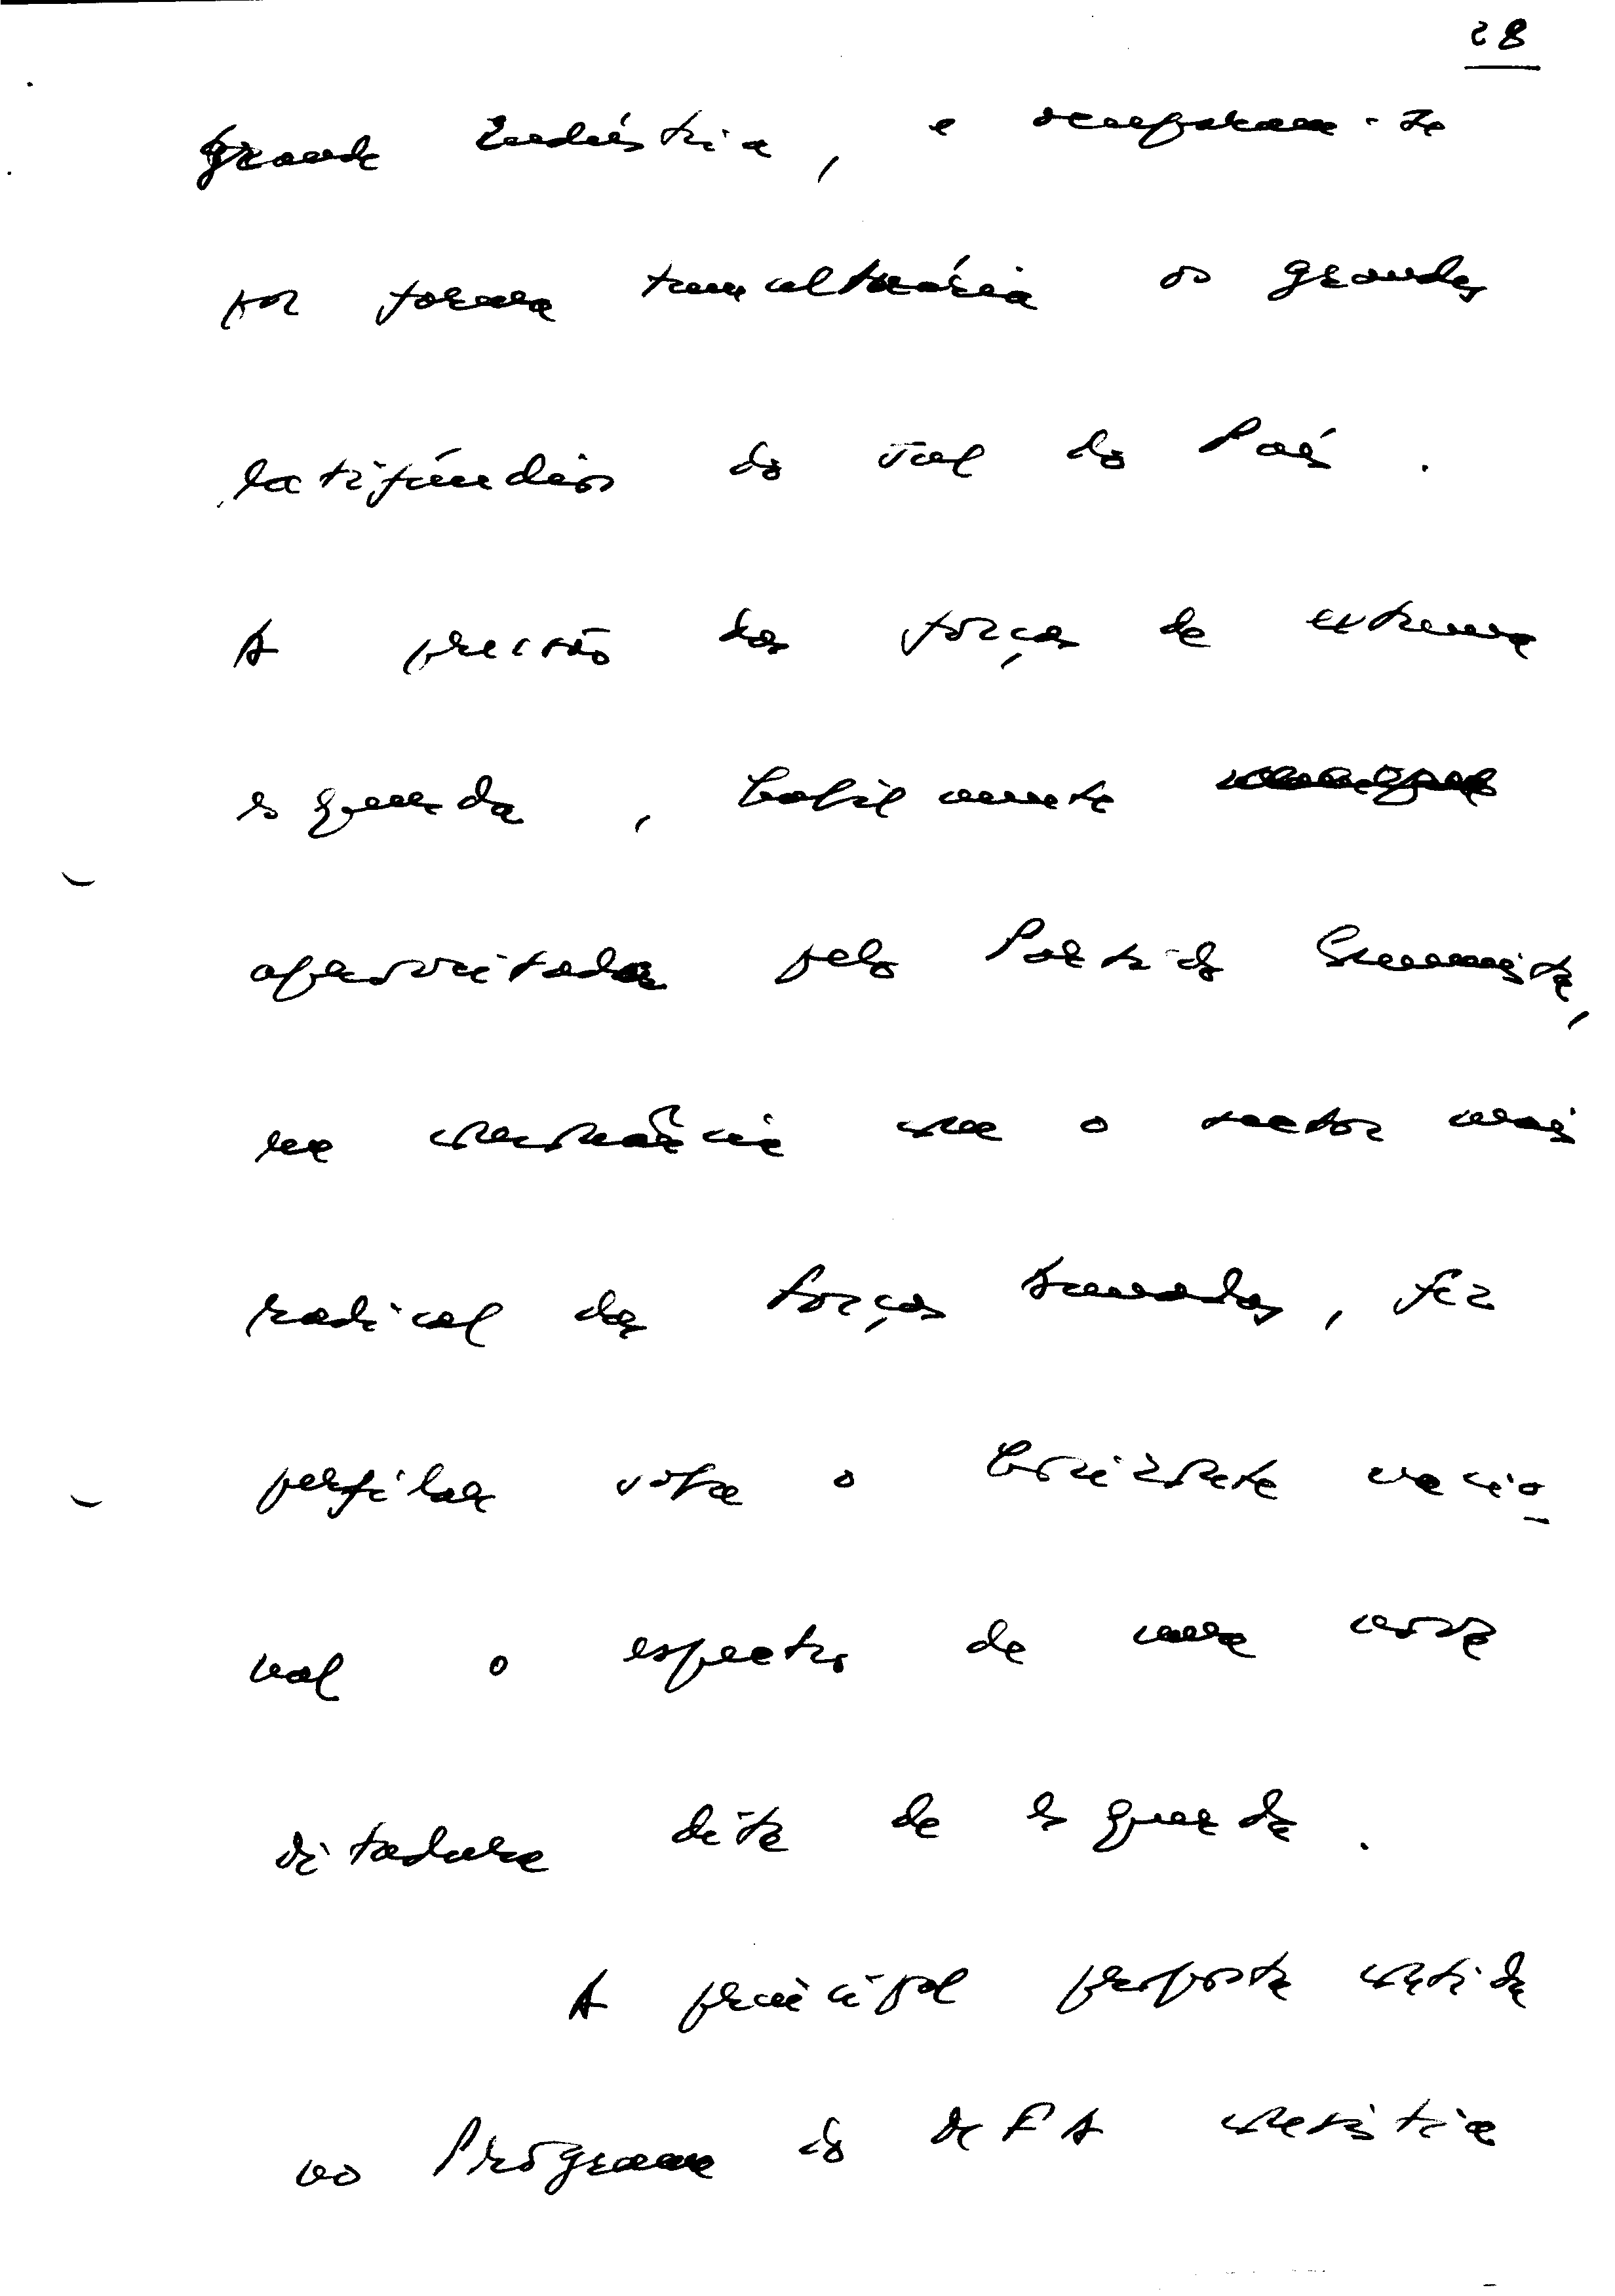 28
grande indústria, e ocuparam-se
por forma tumultuária os grandes
latifúndios do sul do País.
A pressão das forças de extrema
esquerda, habilmente
aproveitada pelo Partido Comunista,
em consonância com o sector mais
radical das Forças Armadas, fez
perfilar sobre o horizonte nacio-
nal o espectro de uma nova
ditadura dita de esquerda.
A principal proposta contida
no Programa do MFA consistia